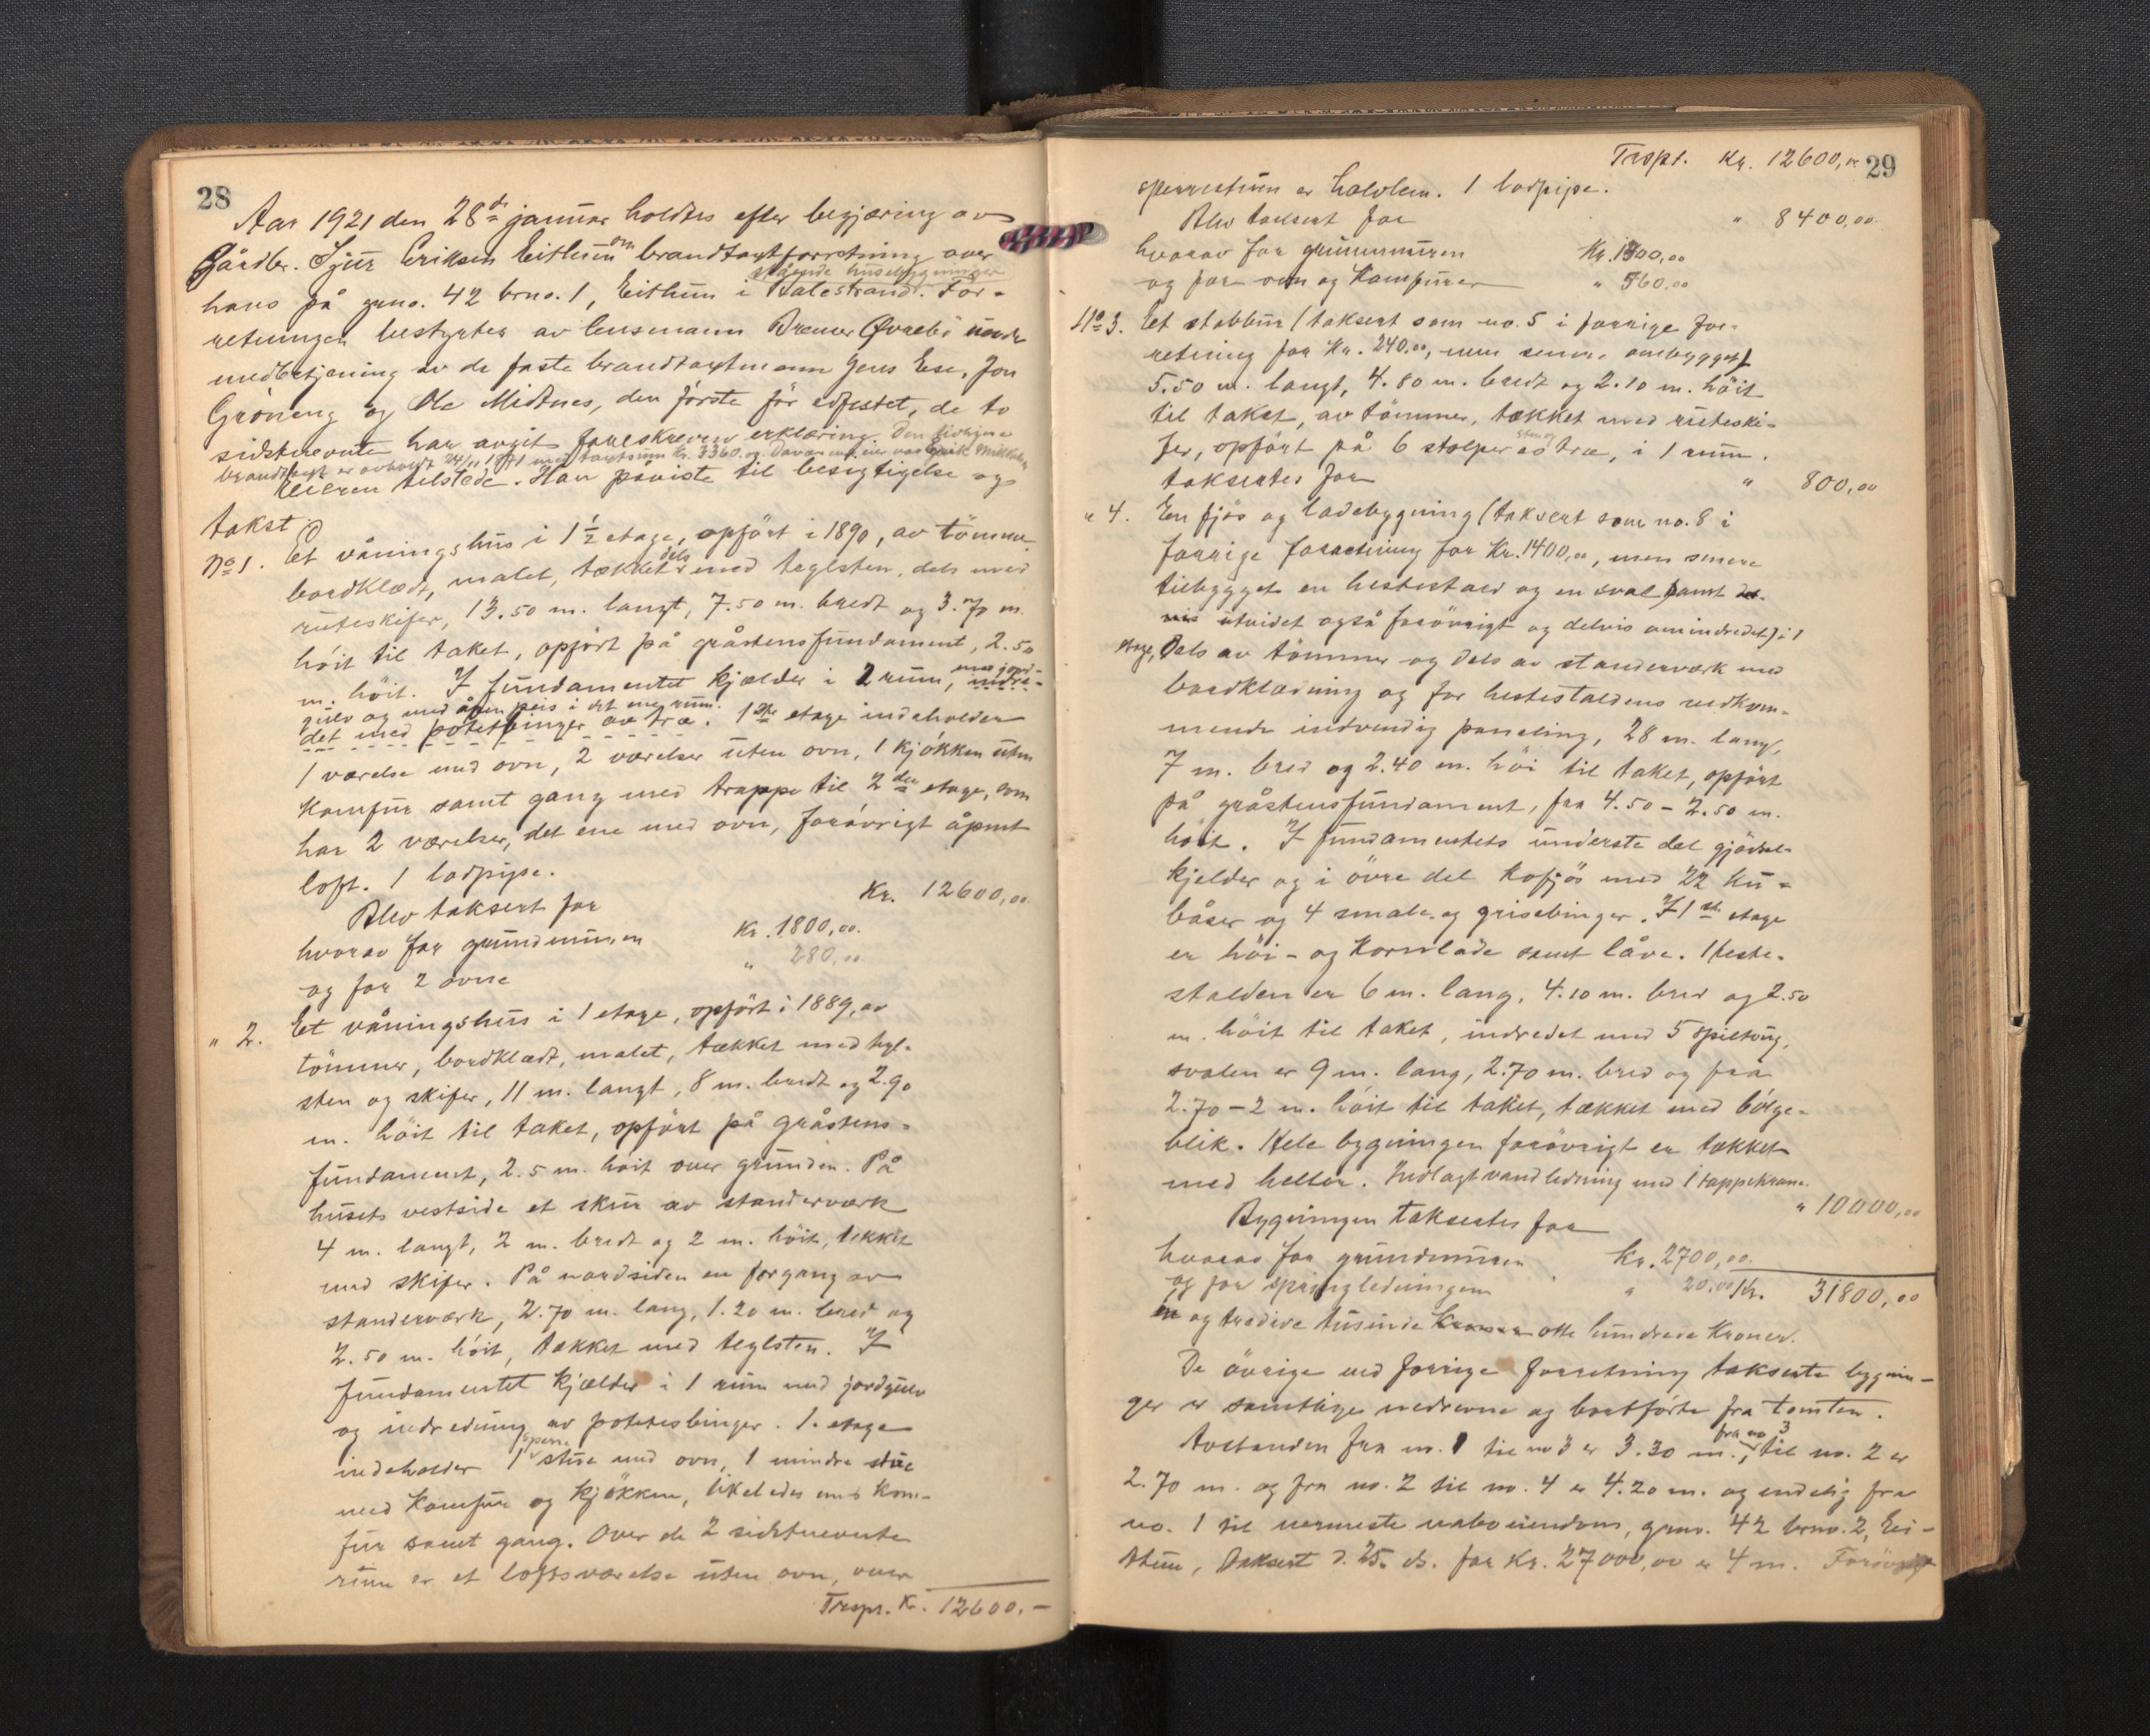 28
Aar 1921 den 28de januar holdtes efter begjæring av
Gårdbr. Sjur Eriksen Eithun om brandtaxtforretning over
stående husebygninger
hans på gno. 42 brno. 1, Eithun i Balestrand. For-
retningen bestyrtes av lensmann Øvrebö under
medbetjening av de faste brandtaxtmenn Jens Ese, Jon
Gröneng og Ole Midtnes, den förste för edfestet, de to
sidstnevnte har avgit foreskreven erklæring. Den tidligere
brandtaxt er avholdt 24/11 med taxtsum Kr. 3360.00. Davær. eier var
Eieren tilstede. Han påviste til besigtigelse og
takst:
No 1. Et våningshus i 1½ etage, opfört i 1890, av tömmer,
bordklædt, malet, tækket dels med teglsten, dels med
ruteskifer, 13.50 m. langt, 7.50 m. bredt og 3.70 m.
höit til taket, opfört på gråstensfundament, 2.50
m. höit. I fundamentet kjælder i 2 rum, med jord-
indre-
gulv og med åpen peis i det ene rum.
det med potetbinger av træ. 1ste etage indeholder
1 værelse med ovn, 2 værelser uten ovn, 1 kjökken uten
komfur samt gang med trappe til 2den etage, som
har 2 værelser, det ene med ovn, forövrigt åpent
loft. 1 lodpipe.
Blev taksert for Kr. 12600,00
hvorav for grundmuren Kr. 1800,00.
og for 2 ovne " 280,00
" 2. Et våningshus i 1 etage, opfört i 1889, av
tömmer, bordklædt, malet, tækket med tegl-
sten og skifer, 11 m. langt, 8 m. bredt og 2.90
m. höit til taket, opfört på gråstens-
fundament, 2.5 m. höit over grunden. På
husets vestside et skur av standerværk
4 m. langt, 2 m. bredt og 2 m. höit, tækket
med skifer. På nordsiden en forgang av
standerværk, 2.70 m. lang, 1.20 m. bred og
2.50 m. höit, tækket med teglsten. I
fundamentet kjælder i 1 rum med jordgulv
og indredning av potetesbinger. 1. etage
indeholder 1 sperre stue med ovn, 1 mindre stue
med komfur og kjökken, likeledes med kom-
fur samt gang. Over de 2 sidstnevnte
rum er et loftsværelse uten ovn, over
Trspt. Kr. 12600.-
29
Trspt. Kr. 12600,00
sperrestuen er halvlem. 1 lodpipe.
Blev taksert for " 8400,00.
hvorav for grunnmuren Kr. 1300,00
og for ovn og komfurer " 560.00
No 3. Et stabbur (taksert som no. 5 i forrige for-
retning for Kr. 240.00, men senere ombygget)
5.50 m. langt, 4.80 m. bredt og 2.10 m. höit
til taket, av tömmer, tækket med ruteski-
fer, opfört på 6 stolper av sten og træ, i 1 rum.
taksertes for " 800,00
" 4. En fjös og ladebygning (taksert som no. 8 i
forrige forretning for Kr. 1400,00, men senere
tilbygget en hestestald og en sval samt del-
vis utvidet også forövrigt og delvis omindredet) i 1
etage, dels av tömmer og dels av standerværk med
bordklædning og for hestestaldens vedkom-
mende indvendig paneling, 28 m. lang,
7 m. bred og 2.40 m. höi til taket, opfört
på gråstensfundament, fra 4.50 – 2.50 m.
höit. I fundamentets underste del gjödsel-
kjelder og i övre del kofjös med 22 ku-
båser og 4 småle- og grisebinger. I 1ste etage
er höi- og kornlade samt låve. Heste-
stalden er 6 m. lang, 4.10 m. bred og 2.50
m. höit til taket, indredet med 5 spiltoug,
svalen er 9 m. lang, 2.70 m. bred og fra
2.70 – 2 m. höit til taket, tækket med bölge-
blik. Hele bygningen forövrigt er tækket
med heller. Indlagt vandledning med 1 tappekrane.
Bygningen taksertes for " 10000,00
hvorav for grundmuren Kr. 2700,00.
og for springledningen " 20.00 Kr. 31800,00
en og tredive tusinde kroner otte hundrede kroner.
De övrige ved forrige forretning takserte bygnin-
ger er samtlige nedrevne og bortförte fra tomten.
Avstanden fra no. 1 til no 3 er 3.30 m., fra no 3 til no. 2 er
2.70 m. og fra no. 2 til no. 4 er 4.20 m. og endelig fra
no. 1 til nermeste naboeiendom, gno. 42 brno. 2, Ei-
thun, taksert d. 25. ds. for Kr. 27000,00 er 4 m. Forövrigt